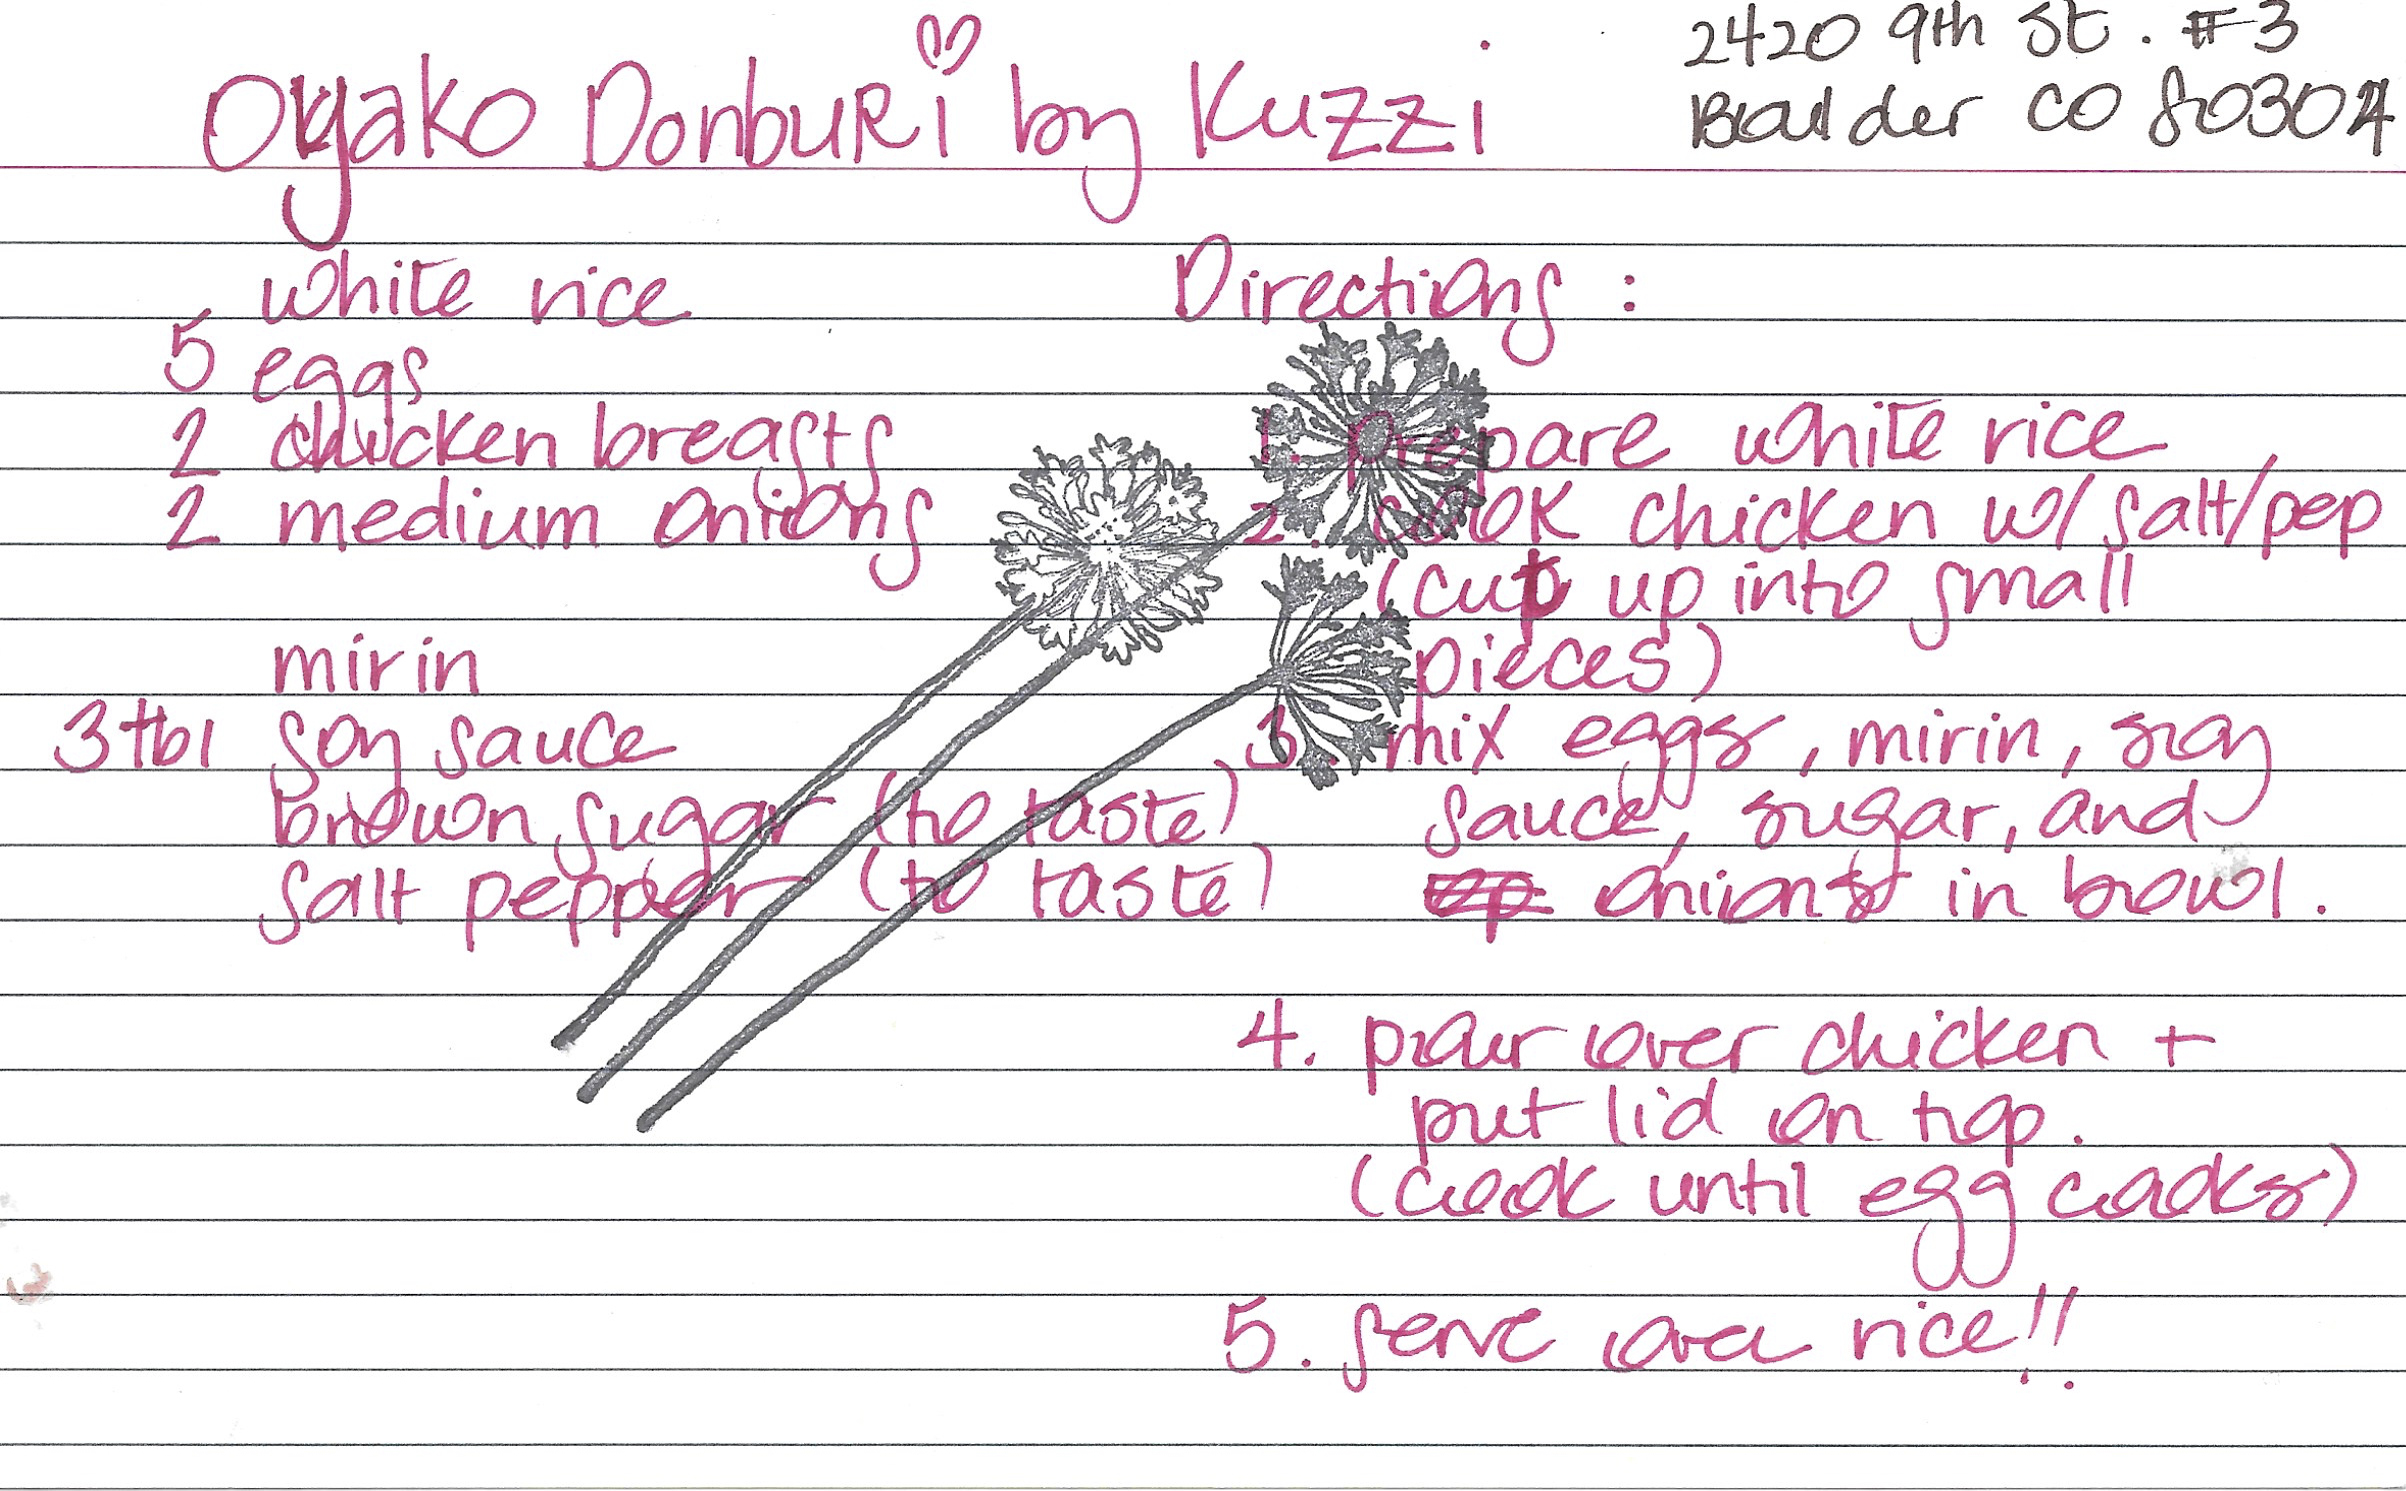 Oyako Donburi by Kuzzi
2420 9th St. #3
Boulder CO 80304
white rice
5 eggs
2 chicken breasts
2 medium onions
mirin
3 tbl soy sauce
brown sugar (to taste)
salt pepper (to taste)
Directions:
1. prepare white rice
2. cook chicken w/ salt/pep
(cut up into small
pieces)
3. mix eggs, mirin, soy
sauce, sugar, and
onions in bowl.
4. pour over chicken +
put lid on top.
(cook until egg cooks)
5. serve over rice!!